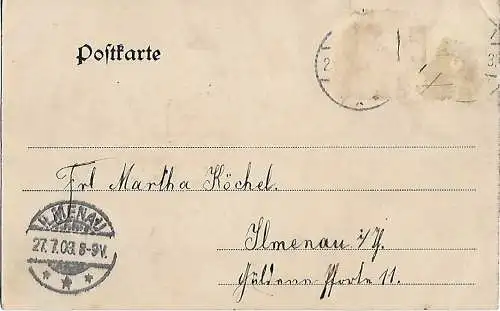 Postkarte
Frl Martha Köchel.
Ilmenau i/Th.
Güldene Pforte 11.
ILMENAU
27.7.03. 8-9V.